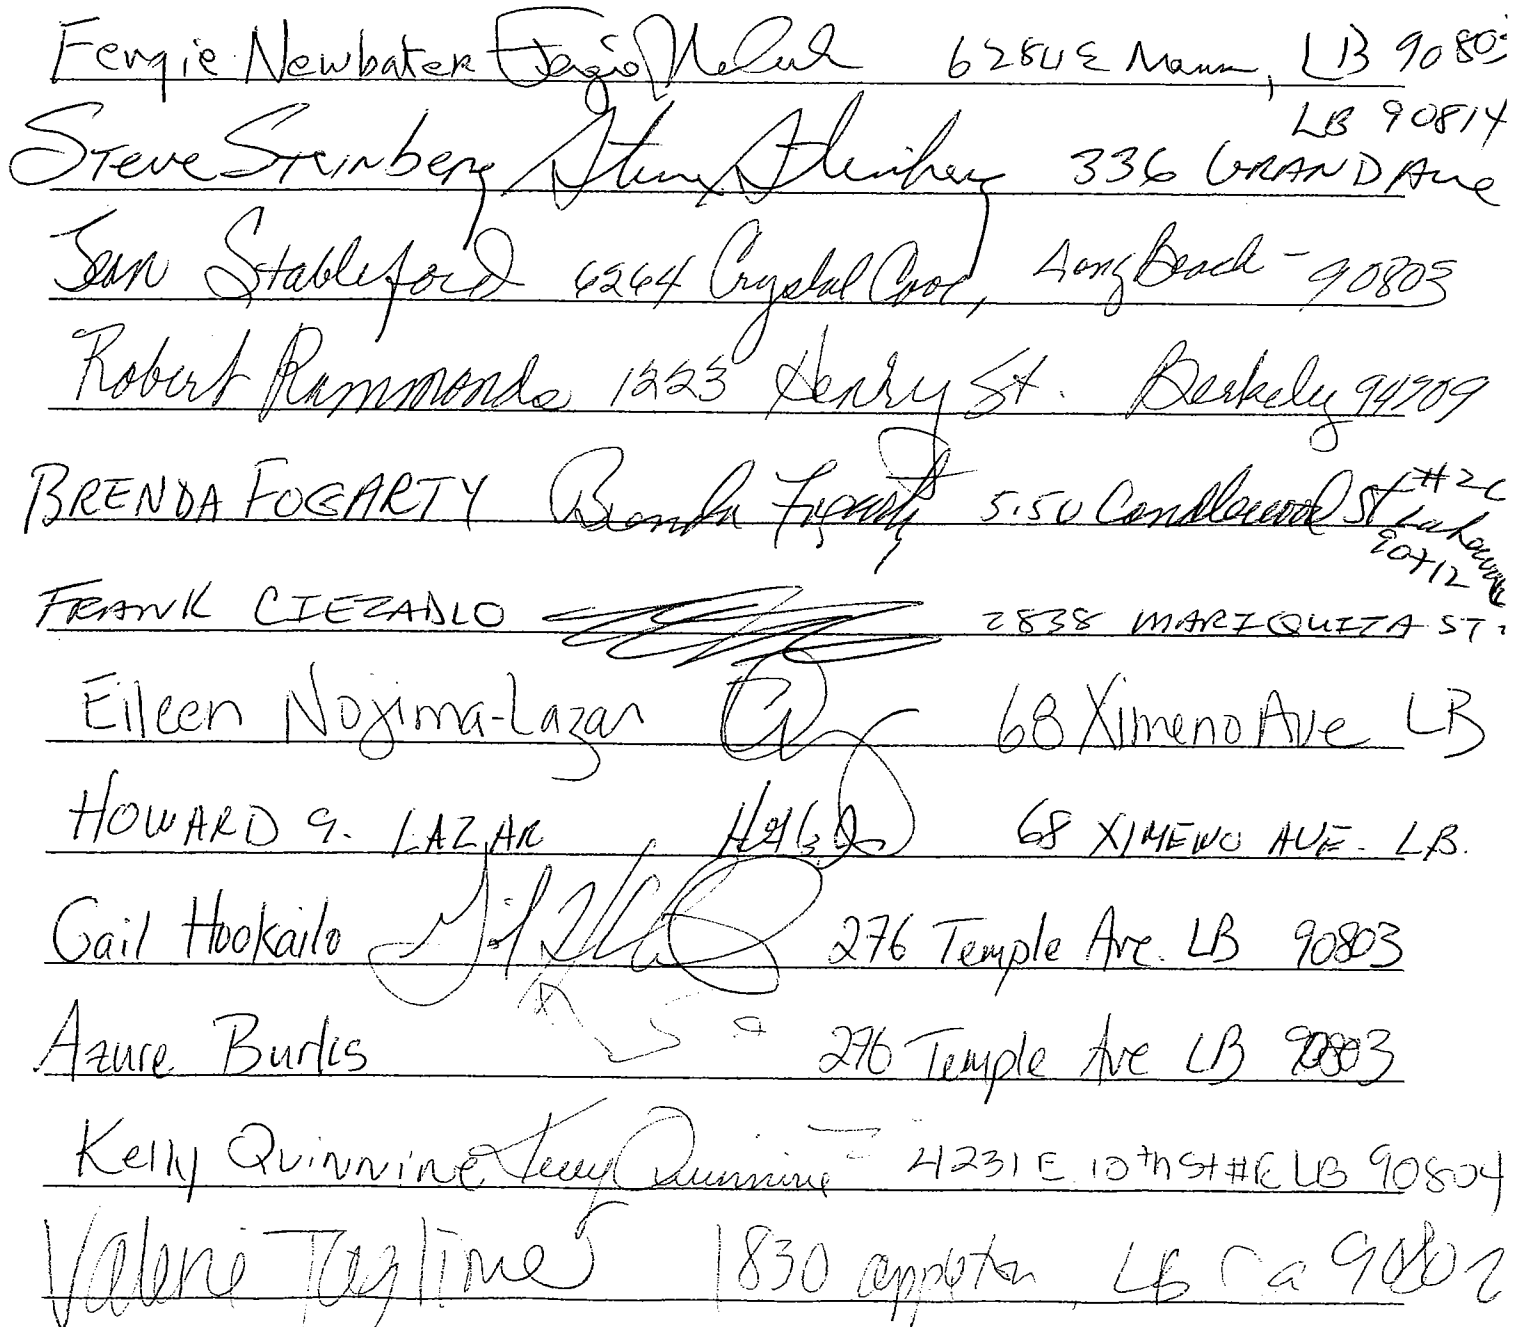 Fergie Newbater 6284 E Marina, LB 9080
LB 90814
Steve Steinberg Steve Steinberg 336 GRAND Ave
Jean Stableford 6264 Crystal Cove, Long Beach - 90803
Robert Rammonds 1223 Henry St. Berkely 94709
BRENDA FOGARTY Brenda Fogarty Candlewood St
Lakewood
90712
FRANK CIEZADLO 2838 MARIQUITA ST.
Eileen Nojima-Lazar 68 Ximeno Ave LB
HOWARD G. LAZAR 68 XIMENO AVE. LB.
Gail Hookailo 276 Temple Ave. LB 90803
Azure Burks 276 Temple Ave LB 90803
Kelly Quinnine Kelly Quinnine 4231 E. 10th St #E LB 90804
Valerie 1830 appleton, LB Ca 90802